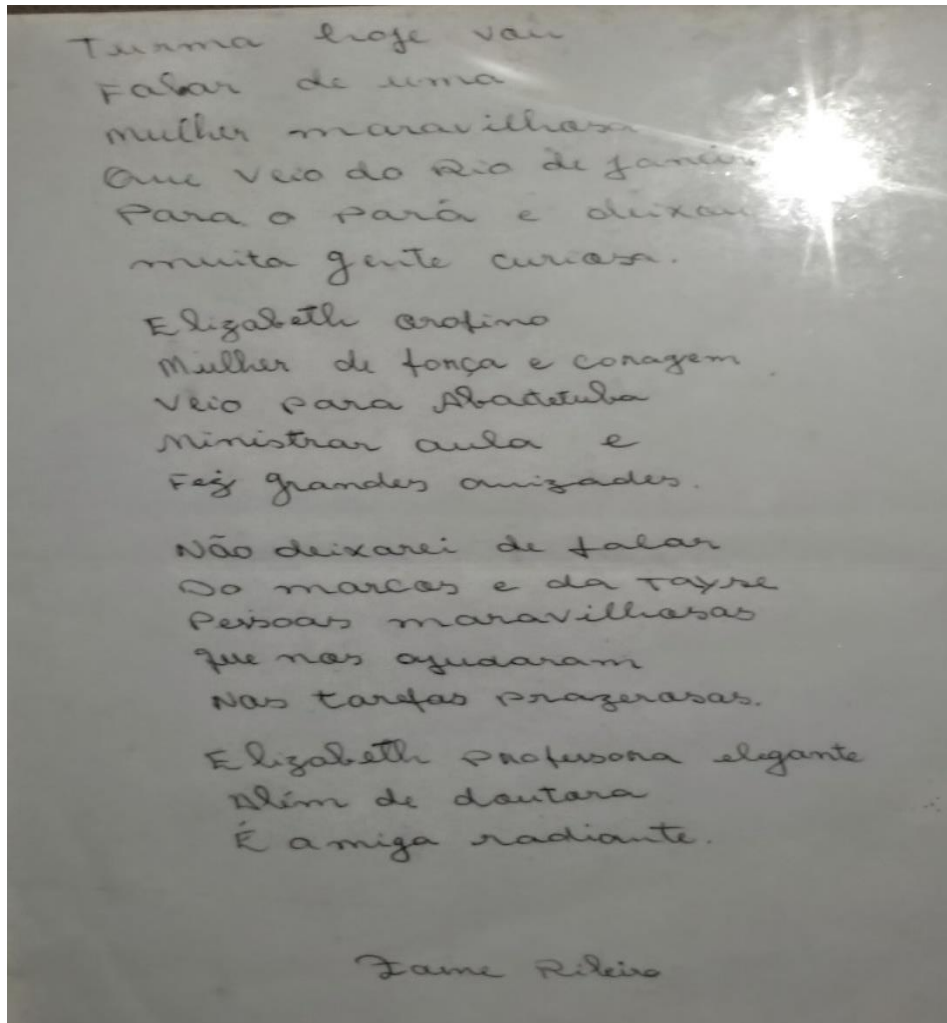 Turma hoje vou
Falar de uma
mulher maravilhosa
Que veio do Rio de Janeiro
Para o Pará e deixou
muita gente curiosa.
Elizabeth Orofino
Mulher de força e coragem
Veio para Abaetetuba
Ministrar aula e
Fez grandes amizades.
Não deixarei de falar
Do marcos e da Tayse
Pessoas maravilhosas
que nos ajudaram
Nas tarefas prazerosas.
Elizabeth Professora elegante
Além de doutora
É amiga radiante.
Ribeiro